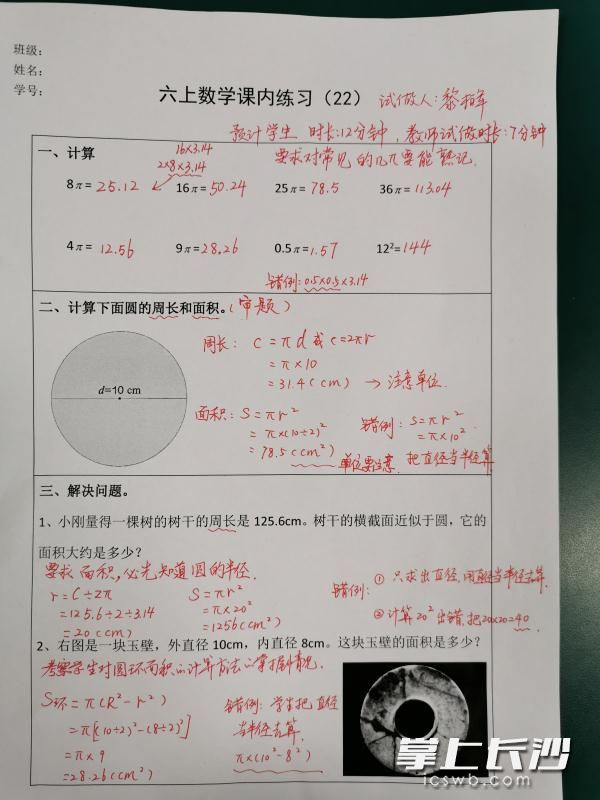 班级：
姓名：
学号：
六上数学课内练习（22） 试做人：黎
预计学生 时长：12分钟，教师试做时长：7分钟
一、计算 16×3.14 要求对常见的几π要能熟记.
2×8×3.14
8π= 25.12 16π= 50.24 25π= 78.5 36π= 113.04
4π= 12.56 9π= 28.26 0.5π= 1.57 12²= 144
错例：0.5×0.5×3.14
二、计算下面圆的周长和面积。（审题）
周长： C = πd 或 C=2πr
= π×10
d=10 cm
= 31.4(cm) → 注意单位.
面积：S = πr² 错例：S=πr²
= π×(10÷2)² =π×10²
= 78.5(cm²) 单位要注意. 把直径当半径算
三、解决问题。
1、小刚量得一棵树的树干的周长是 125.6cm。树干的横截面近似于圆，它的
面积大约是多少？
要求面积，必先知道圆的半径. 错例：① 只求出直径，用直径当半径去算.
r = C÷2π S = πr²
=125.6÷2÷3.14 =π×20² ② 计算20²出错，把20×20=40
=20(cm) =1256(cm²)
2、右图是一块玉壁，外直径 10cm，内直径 8cm。这块玉壁的面积是多少？
考察学生对圆环面积的计算方法的掌握情况.
S环 = π(R²-r²) 错例：学生把直径
=π[(10÷2)²-(8÷2)²] 当半径去算.
=π×9 π×(10²-8²)
=28.26(cm²)
掌上长沙
icswb.com